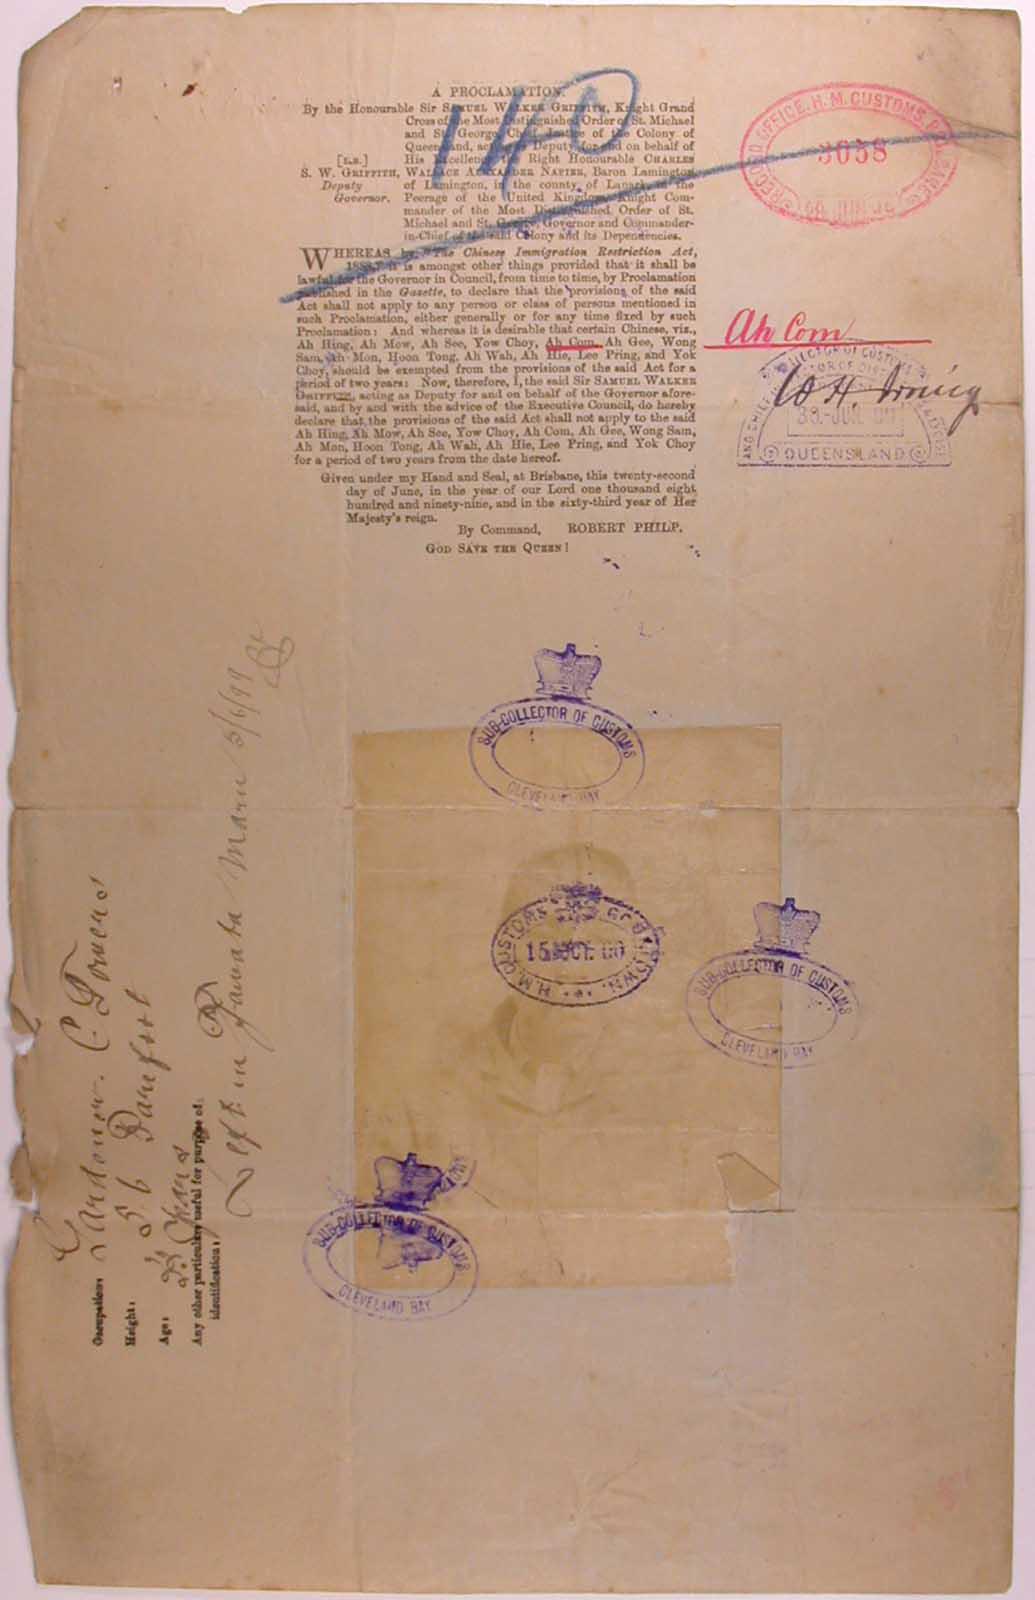 A PROCLAMATION.
By the Honourable Sir SAMUEL WALKER GRIFFITH, Knight Grand
Cross of the Most Distinguished Order of St. Michael
and St. George, Chief Justice of the Colony of
Queensland, acting as Deputy for and on behalf of
[L.S.] His Excellency the Right Honourable CHARLES
S. W. GRIFFITH, WALLACE ALEXANDER NAPIER, Baron Lamington
Deputy of Lamington, in the county of Lanark, in the
Governor. Peerage of the United Kingdom, Knight Com-
mander of the Most Distinguished Order of St.
Michael and St. George, Governor and Commander-
in-Chief of the said Colony and its Dependencies.
WHEREAS by "The Chinese Immigration Restriction Act,
1888," it is amongst other things provided that it shall be
lawful for the Governor in Council, from time to time, by Proclamation
published in the Gazette, to declare that the provisions of the said
Act shall not apply to any person or class of persons mentioned in
such Proclamation, either generally or for any time fixed by such
Proclamation: And whereas it is desirable that certain Chinese, viz.,
Ah Hing, Ah Mow, Ah See, Yow Choy, Ah Com, Ah Gee, Wong
Sam, Ah Mon, Hoon Tong, Ah Wah, Ah Hie, Lee Pring, and Yok
Choy, should be exempted from the provisions of the said Act for a
period of two years: Now, therefore, I, the said Sir SAMUEL WALKER
GRIFFITH, acting as Deputy for and on behalf of the Governor afore-
said, and by and with the advice of the Executive Council, do hereby
declare that the provisions of the said Act shall not apply to the said
Ah Hing, Ah Mow, Ah See, Yow Choy, Ah Com, Ah Gee, Wong Sam,
Ah Mon, Hoon Tong, Ah Wah, Ah Hie, Lee Pring, and Yok Choy
for a period of two years from the date hereof.
Given under my Hand and Seal, at Brisbane, this twenty-second
day of June, in the year of our Lord one thousand eight
hundred and ninety-nine, and in the sixty-third year of Her
Majesty's reign.
By Command, ROBERT PHILP.
GOD SAVE THE QUEEN!
140
RECORD OFFICE, H.M. CUSTOMS,
3058
Ah Com
W H Irving
COLLECTOR OF CUSTOMS
QUEENSLAND
SUB-COLLECTOR OF CUSTOMS
CLEVELAND BAY
H.M. CUSTOMS GEORGETOWN
15 OCT. 00
SUB-COLLECTOR OF CUSTOMS
CLEVELAND BAY
SUB-COLLECTOR OF CUSTOMS
CLEVELAND BAY
Occupation: Gardener C. Towers
Height: 5. 6
Age: Years
Any other particulars useful for purpose of
identification:
Left in Yawata Maru 5/6/99